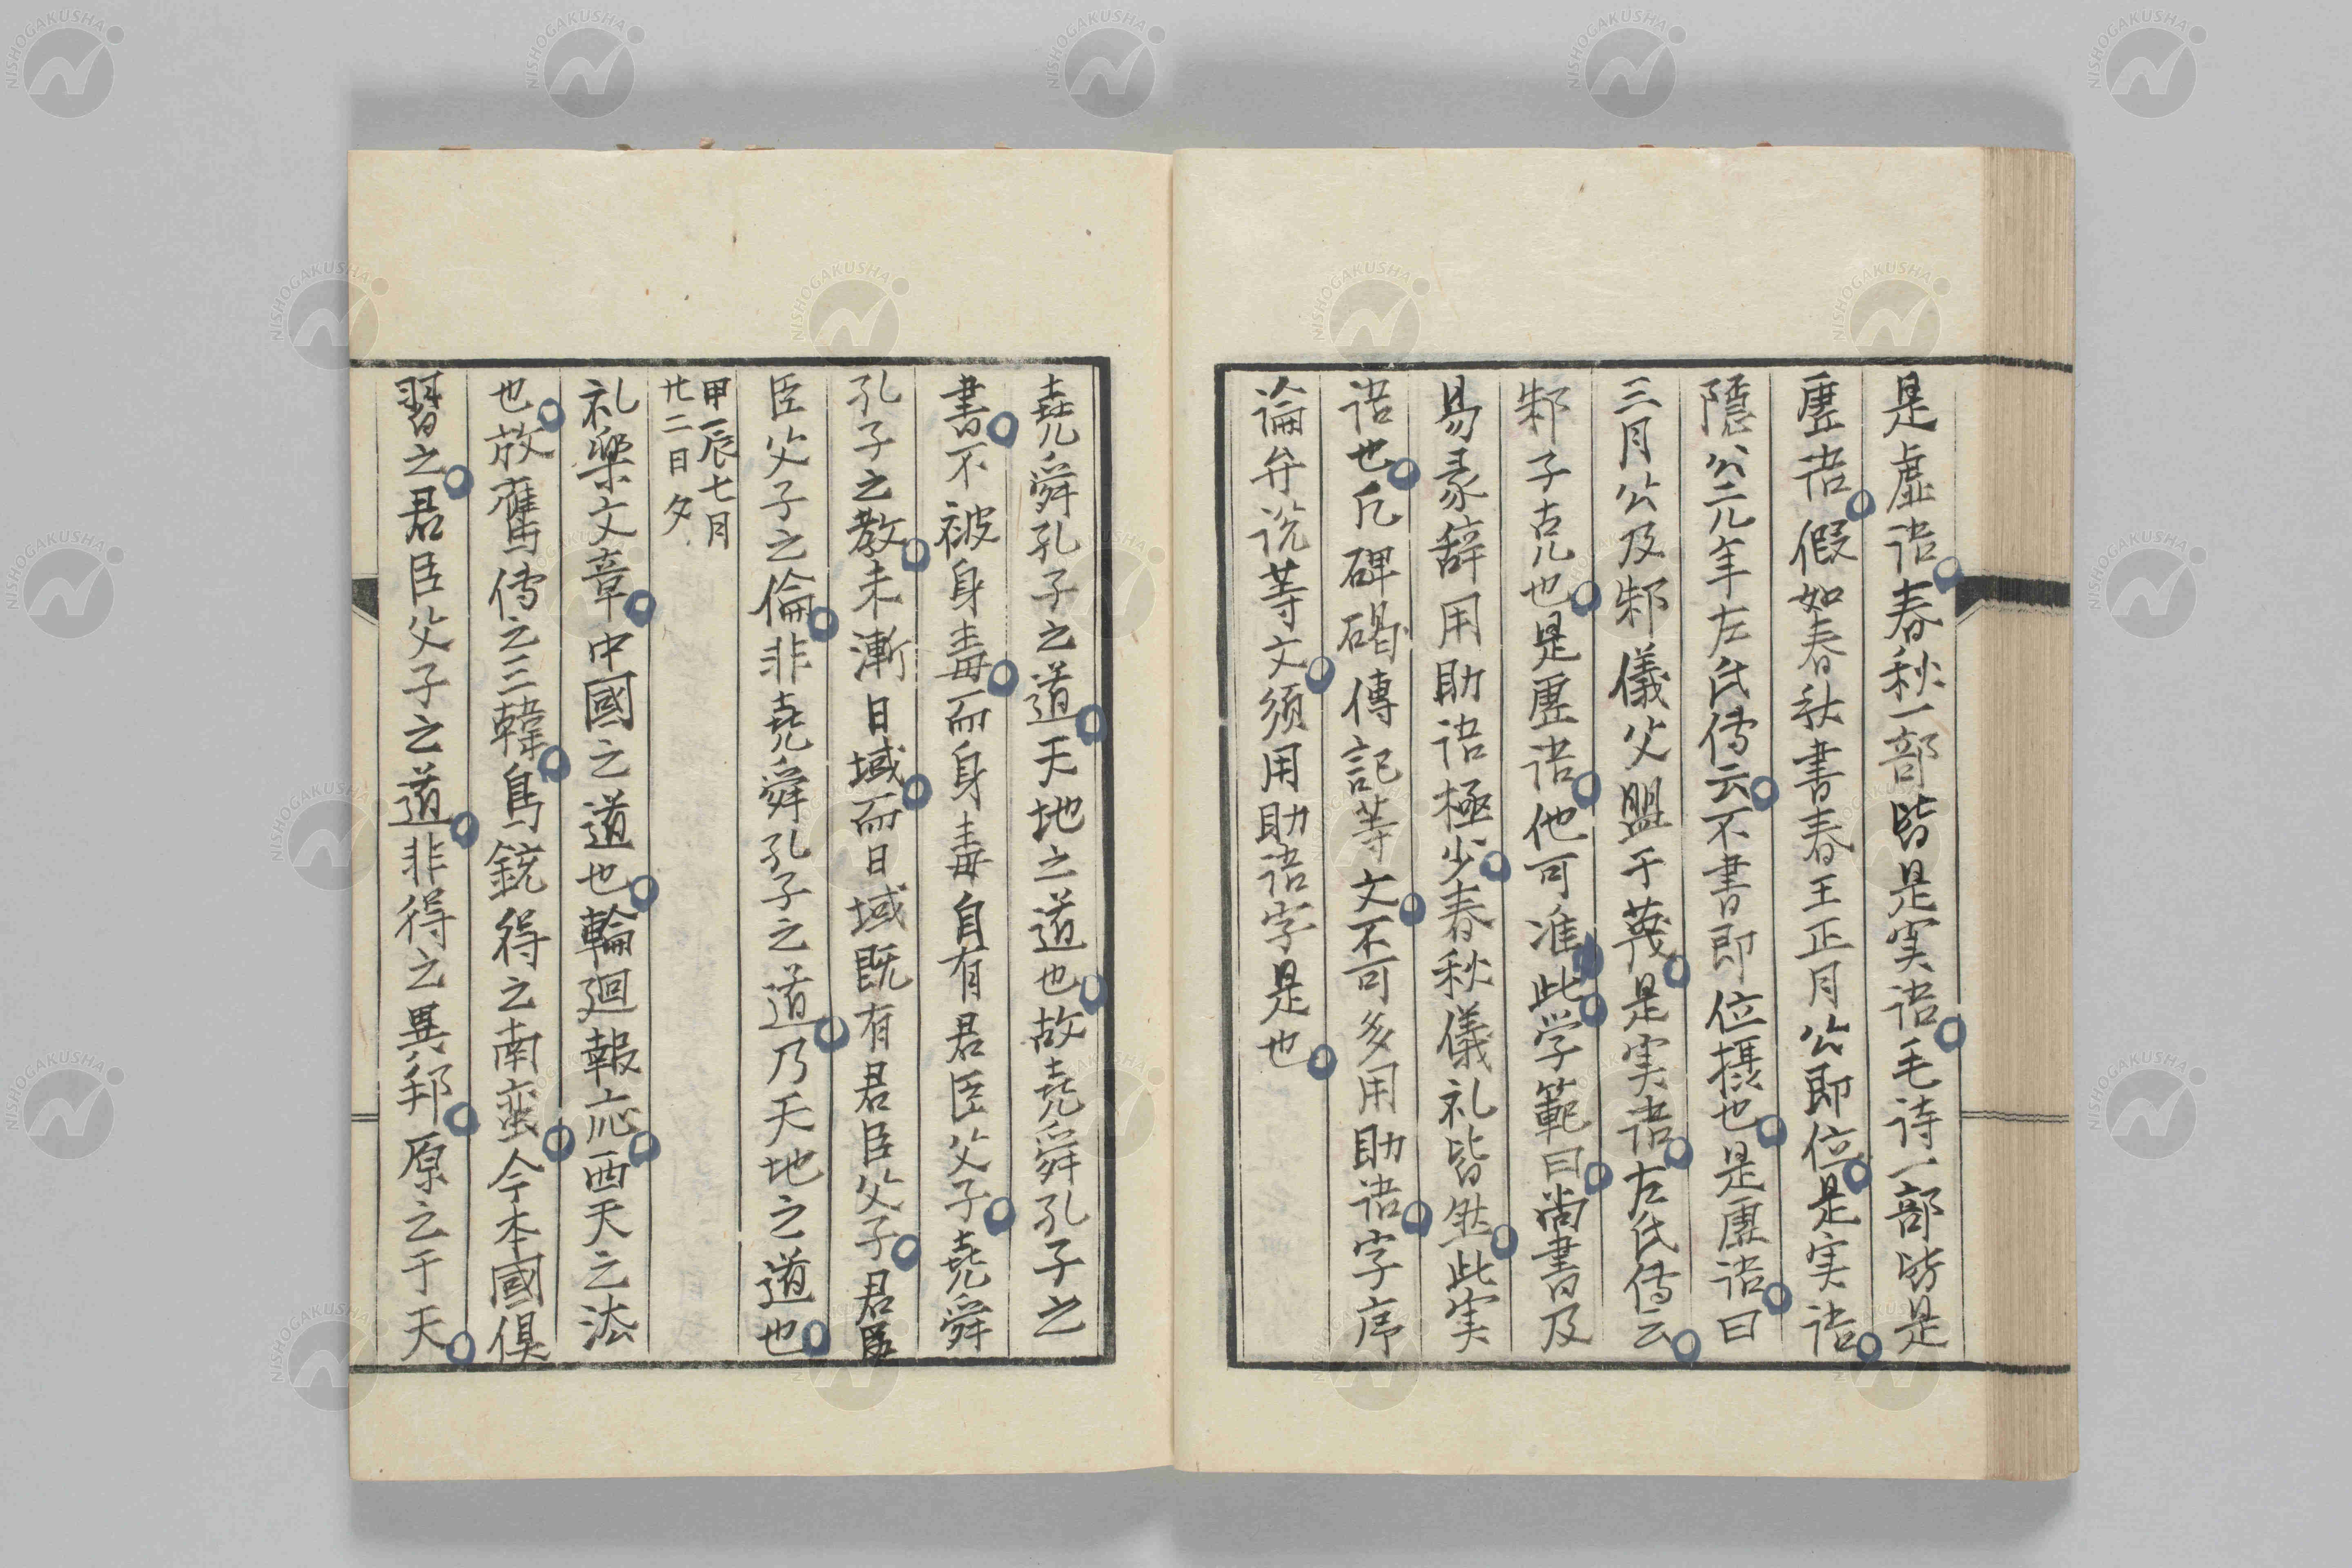 是虚語春秋一部皆是実語毛诗一部皆是
虚語假如春秋書春王正月公即位是実語
隠公元年左氏傳云不書即位摂也是虚語曰
三月公及邾儀父盟于蔑是実語左氏傳云
邾子克也是虚語他可准此学範曰尚書及
易彖辞用助语極少春秋儀礼皆然此実
语也凡碑碣傳記等文不可多用助语字序
论弁说等文须用助语字是也
堯舜孔子之道天地之道也故堯舜孔子之
書不被身毒而身毒自有君臣父子堯舜
孔子之教未漸日域而日域既有君臣父子君臣
臣父子之倫非堯舜孔子之道乃天地之道也
甲辰七月
廿二日夕
礼樂文章中國之道也輪廻報応西天之法
也放鷹傳之三韓鳥銃得之南蛮今本國俱
習之君臣父子之道非得之異邦原之于天
NISHOGAKUSHA